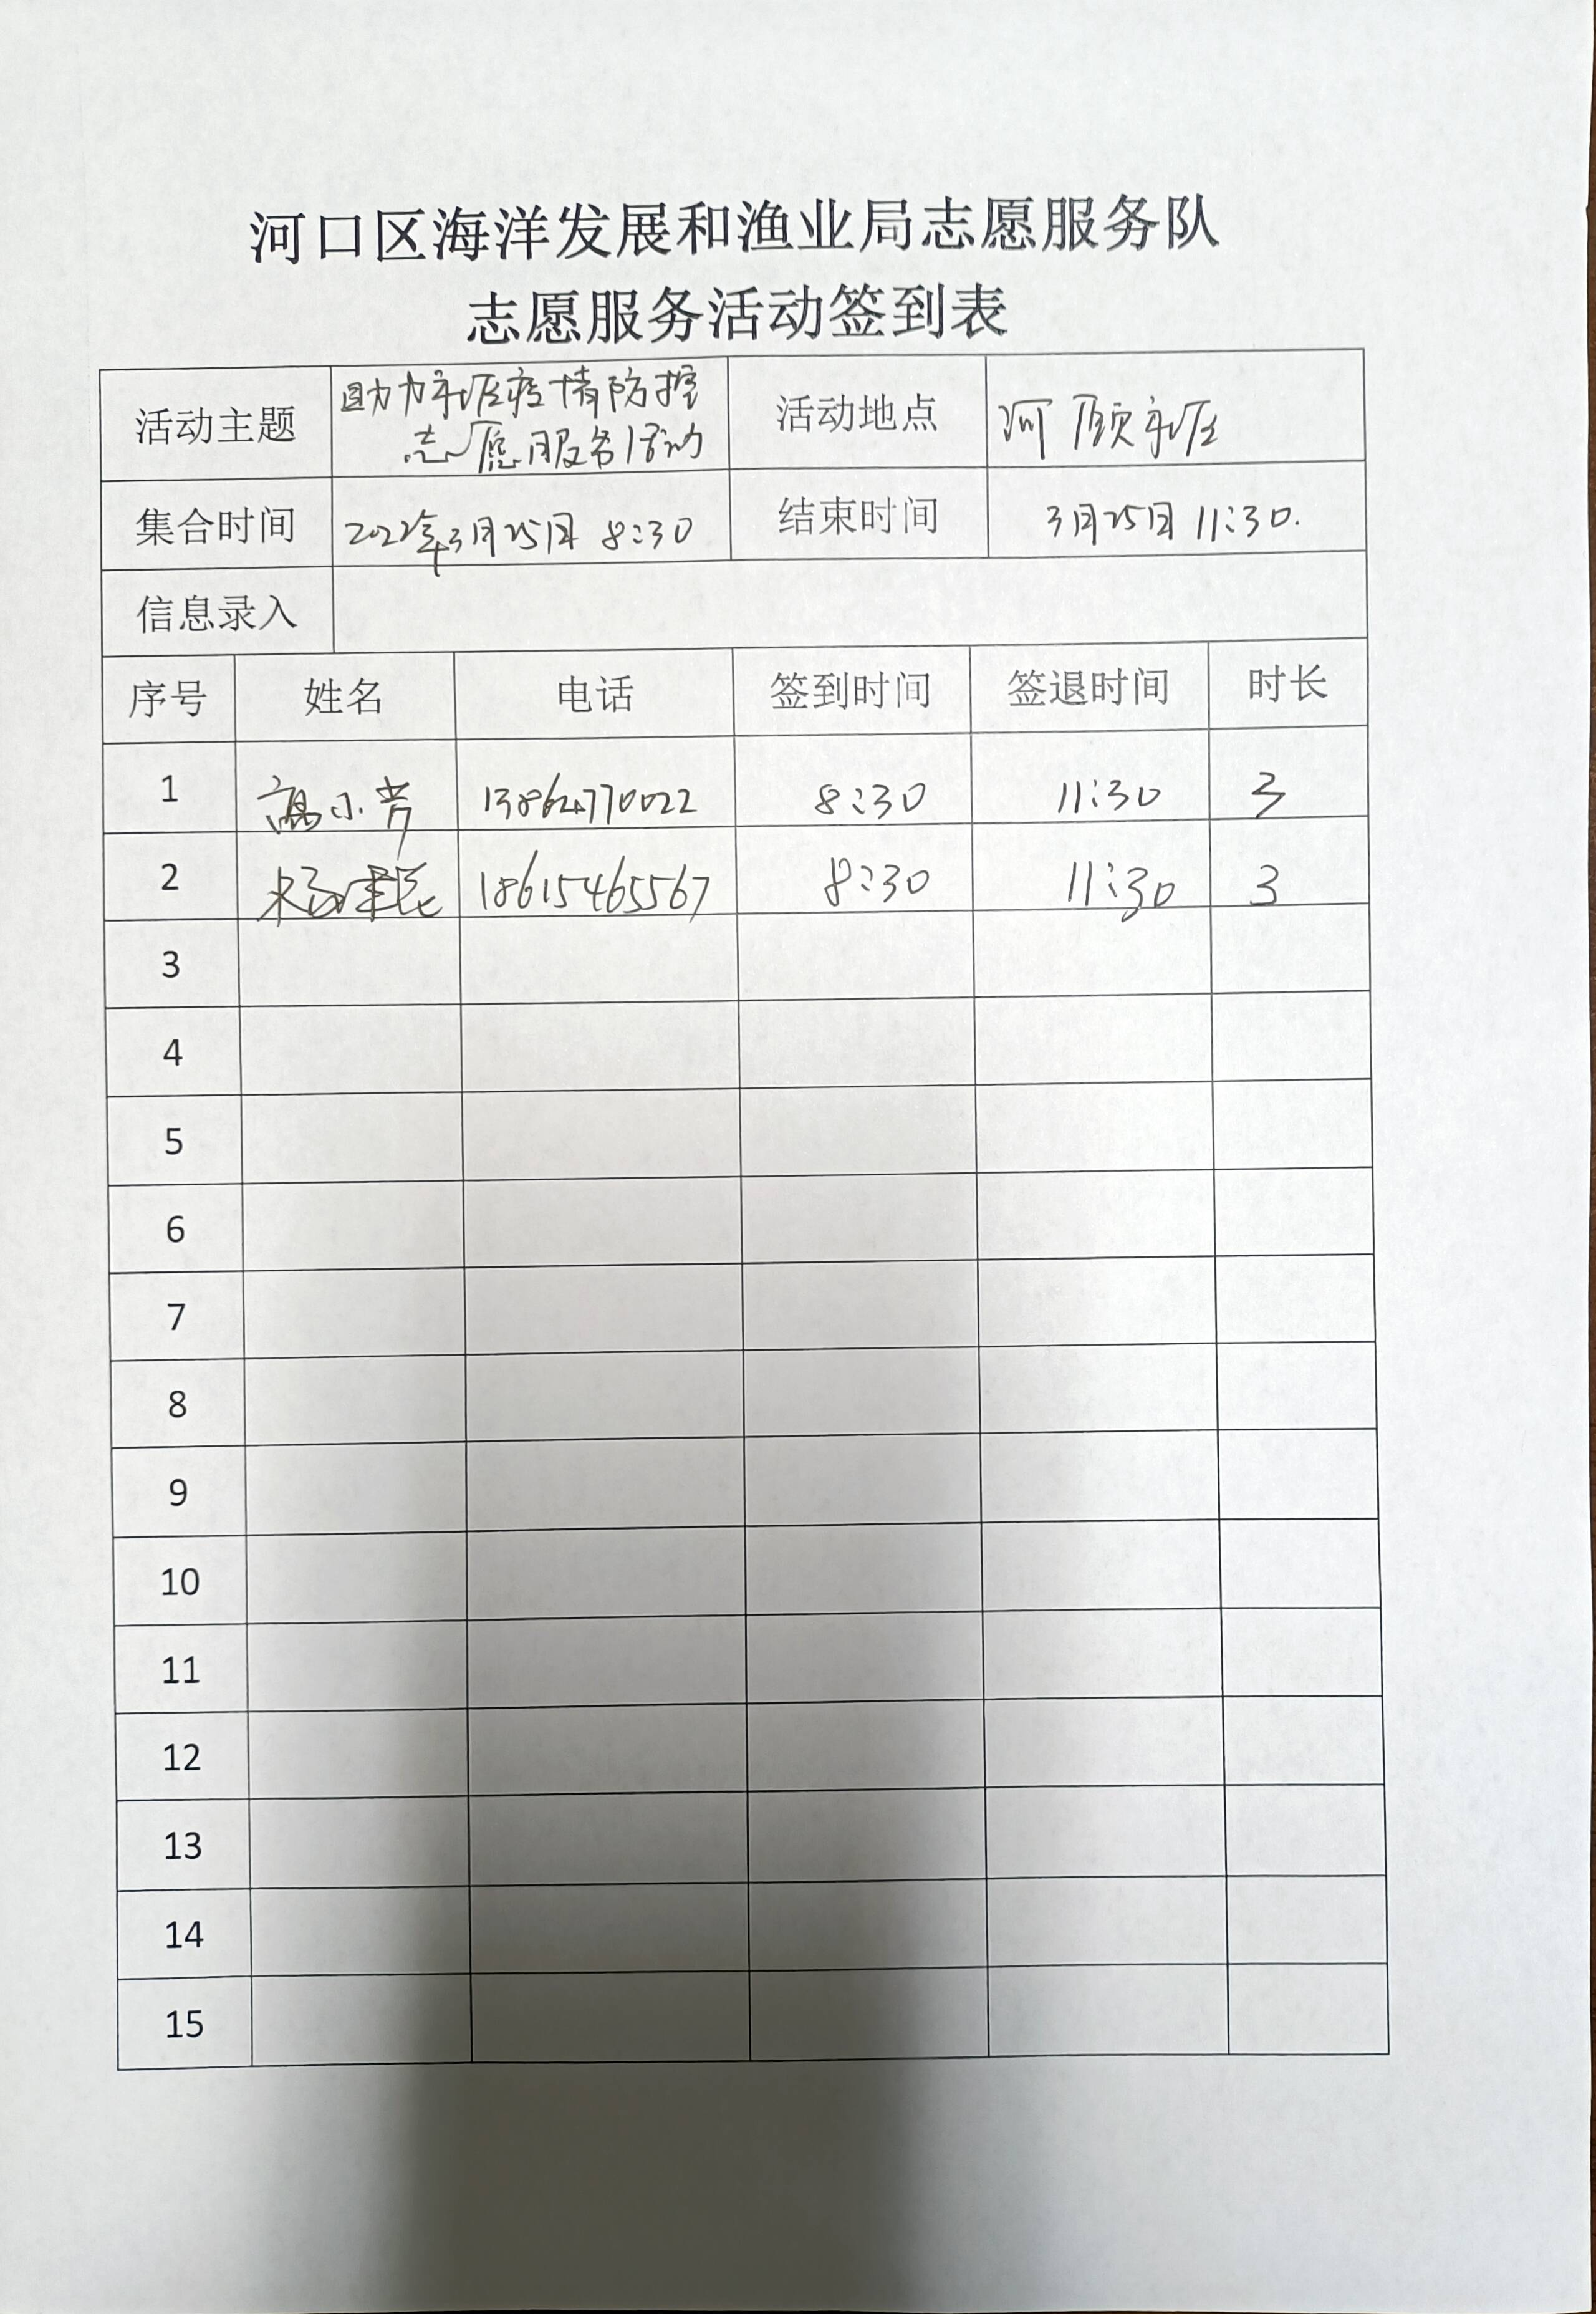 河口区海洋发展和渔业局志愿服务队
志愿服务活动签到表
活动主题 助力社区疫情防控 活动地点 河颐社区
志愿服务活动
集合时间 2022年3月25日 8:30 结束时间 3月25日 11:30.
信息录入
序号 姓名 电话 签到时间 签退时间 时长
1 高小芳 13864770022 8:30 11:30 3
2 杨 18615465567 8:30 11:30 3
3
4
5
6
7
8
9
10
11
12
13
14
15